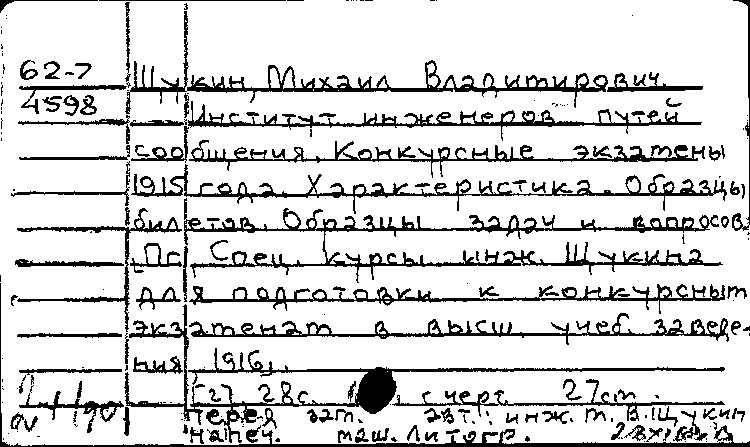 62-7 Щукин, Михаил Владимирович.
4598 Институт инженеров путей
сообщения. Конкурсные экзамены
1915 года. Характеристика. Образцы
билетов. Образцы задач и вопросов.
Пг., Спец. курсы инж. Щукина
для подготовки к конкурсным
экзаменам в высш. учеб. заведе-
ния, 1916.
[2], 28с. с черт. 27см.
Перед загл. авт.: инж. М.В.Щукин
Напеч. маш. литогр.